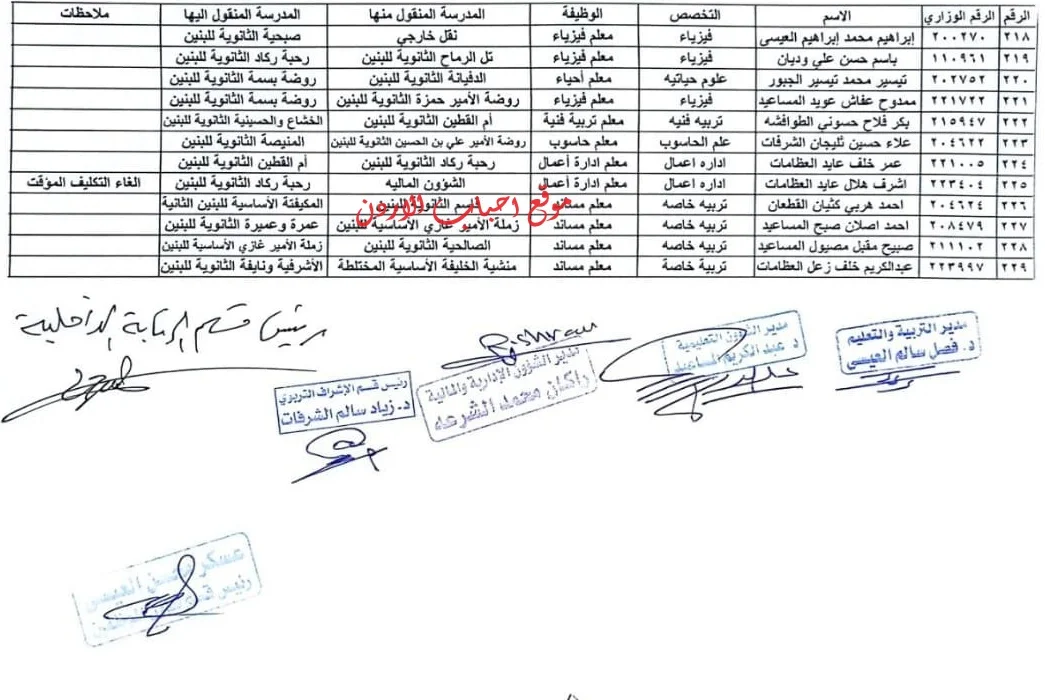 الرقم الرقم الوزاري الاسم التخصص الوظيفة المدرسة المنقول منها المدرسة المنقول اليها ملاحظات
٢١٨ ٢٠٠٢٧٠ إبراهيم محمد إبراهيم العيسى فيزياء معلم فيزياء نقل خارجي صبحية الثانوية للبنين
٢١٩ ١١٠٩٦١ باسم حسن علي وديان فيزياء معلم فيزياء تل الرماح الثانوية للبنين رحبة ركاد الثانوية للبنين
٢٢٠ ٢٠٢٧٥٢ تيسير محمد تيسير الجبور علوم حياتيه معلم أحياء الدفيانة الثانوية للبنين روضة بسمة الثانوية للبنين
٢٢١ ٢٢١٧٢٢ ممدوح عفاش عويد المساعيد فيزياء معلم فيزياء روضة الأمير حمزة الثانوية للبنين روضة بسمة الثانوية للبنين
٢٢٢ ٢١٥٩٤٧ بكر فلاح حسوني الطوافشه تربيه فنيه معلم تربية فنية أم القطين الثانوية للبنين الخشاع والحسينية الثانوية للبنين
٢٢٣ ٢٠٤٦٢٢ علاء حسين ثليجان الشرفات علم الحاسوب معلم حاسوب روضة الأمير علي بن الحسين الثانوية للبنين المنيصة الثانوية للبنين
٢٢٤ ٢٢١٠٠٥ عمر خلف عايد العظامات اداره اعمال معلم ادارة أعمال رحبة ركاد الثانوية للبنين أم القطين الثانوية للبنين
٢٢٥ ٢٢٣٤٠٤ اشرف هلال عايد العظامات اداره اعمال معلم ادارة أعمال الشؤون الماليه رحبة ركاد الثانوية للبنين الغاء التكليف المؤقت
٢٢٦ ٢٠٤٦٢٤ احمد هربي كثيان القطعان تربيه خاصه معلم مساند قاسم الثانوية للبنين المكيفتة الأساسية للبنين الثانية
موقع احباب الاردن
٢٢٧ ٢٠٨٤٧٩ احمد اصلان صبح المساعيد تربيه خاصه معلم مساند زملة الأمير غازي الأساسية للبنين عمرة وعميرة الثانوية للبنين
٢٢٨ ٢١١١٠٢ صبيح مقبل مصيول المساعيد تربيه خاصه معلم مساند الصالحية الثانوية للبنين زملة الأمير غازي الأساسية للبنين
٢٢٩ ٢٢٣٩٩٧ عبدالكريم خلف زعل العظامات تربية خاصة معلم مساند منشية الخليفة الأساسية المختلطة الأشرفية ونايفة الثانوية للبنين
مدير التربية والتعليم
د. فصل سالم العيسى
مدير الشؤون التعليمية
د عبد الكريم المساعيد
مدير الشؤون الإدارية والمالية
راكان محمد الشرعه
رئيس قسم الإشراف التربوي
د. زياد سالم الشرفات
رئيس قسم الرقابة الداخلية
عسكر العيسى
رئيس